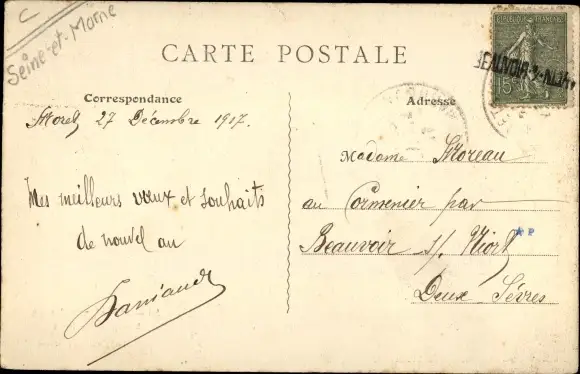 C
Seine-et-Marne
REPUBLIQUE FRANÇAISE
BEAUVOIR-S-NIORT
15
CARTE POSTALE
Correspondance
Moret 27 Décembre 1917.
Mes meilleurs vœux et souhaits
de nouvel an
Adresse
Madame Moreau
au Cormenier par
Beauvoir s/ Niort
Deux Sèvres